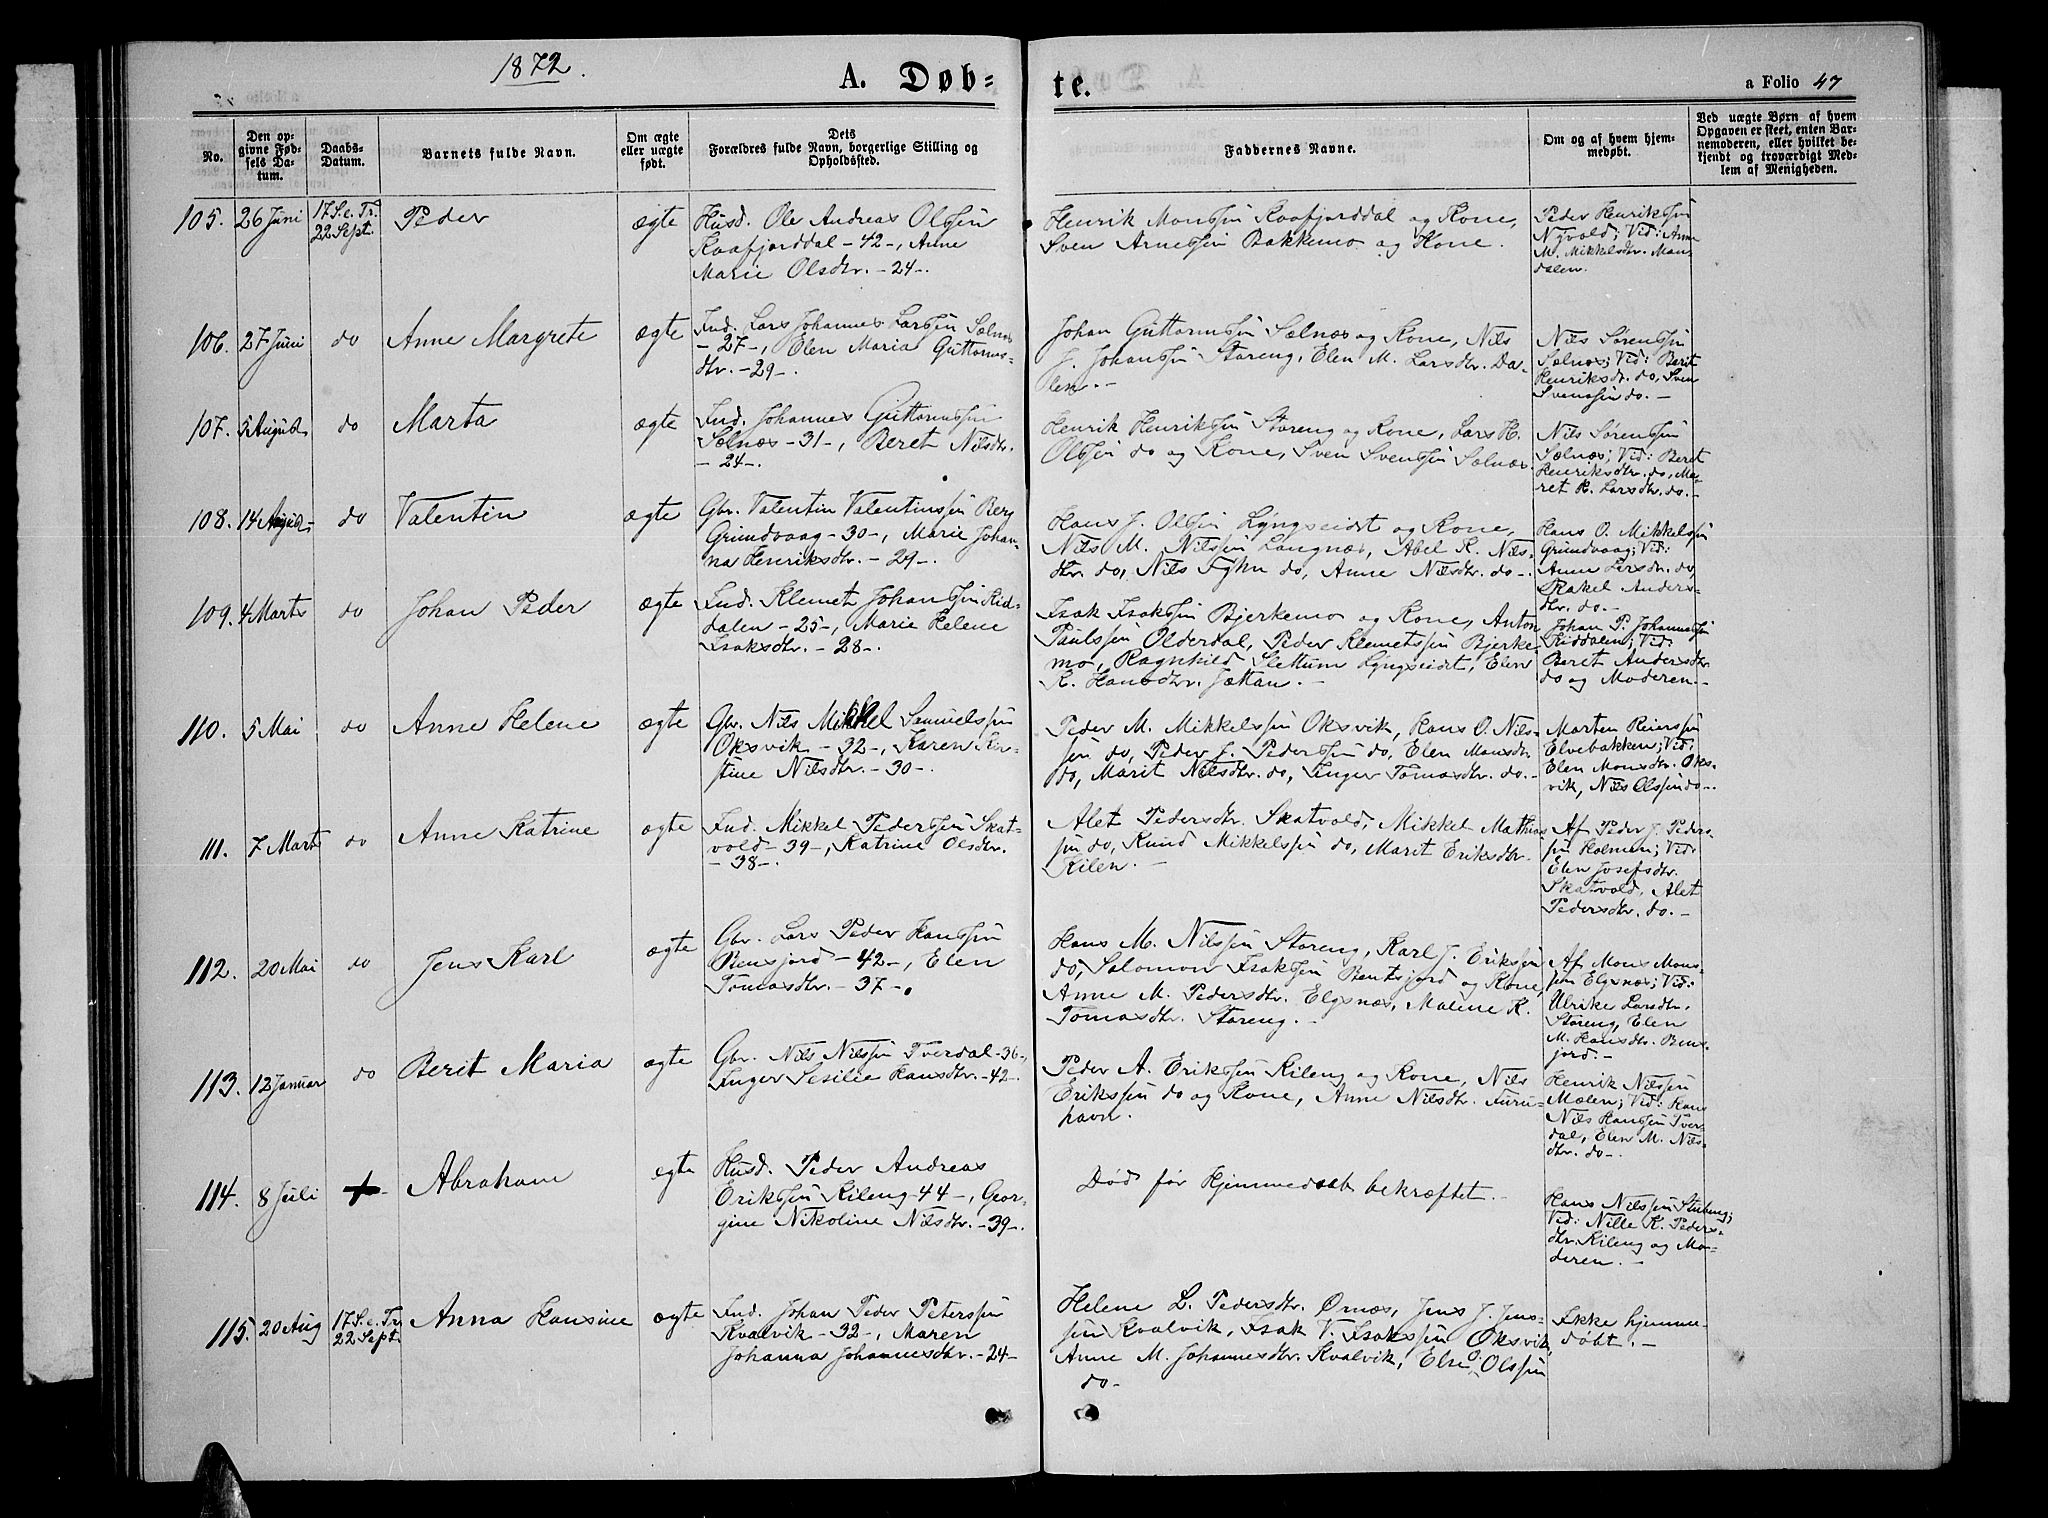 1872.
A. Døb-
te.
a Folio 47
No.
Den op-
givne Fød-
sels Da-
tum.
Daabs-
Datum.
Barnets fulde Navn.
Om ægte
eller uægte
født.
Dets
Forældres fulde Navn, borgerlige Stilling og
Opholdssted.
Faddernes Navne.
Om og af hvem hjem-
medøbt.
Ved uægte Børn af hvem
Opgaven er skeet, enten Bar-
nemoderen, eller hvilket be-
kjendt og troværdigt Med-
lem af Menigheden.
105. 26 Juni
17 S. e. Tr.
22 Sept.
Peder
ægte
Husd. Ole Andreas Olssen
Kaafjorddal - 42 -, Anne
Marie Olsdtr. - 24 -.
Henrik Monssen Kaafjorddal og Kone,
Sven Arnessen Bakkemo og Kone.
Peder Henrikssen
Nyvold; Vid: Anne
M. Mikkelsdtr. Man-
dalen.
106. 27 Juni
do
Anne Margrete
ægte
Ind. Lars Johannes Larssen Sælnæs
- 27 -, Elen Maria Guttorms-
dtr. - 29 -.
Johan Guttormssen Sælnæs og Kone, Nils
J. Johanssen Storeng, Elen M. Larsdtr. Da-
len. -
Nils Sørenssen
Sælnæs; Vid: Berit
Henriksdtr. do, Sven
Svenssen do. -
107. 3 August
do
Marta
ægte
Ind. Johannes Guttormssen
Sælnæs - 31 -, Beret Nilsdtr.
- 24 -.
Henrik Henrikssen Storeng og Kone, Lars H.
Olssen do og Kone, Sven Svenssen Sælnæs.
Nils Sørenssen
Sælnæs; Vid: Beret
Henriksdtr. do, Ma-
ret K. Larsdtr. do. -
108. 14 August
do
Valentin
ægte
Gbr. Valentin Valentinssen Berg
Grundvaag - 30 -, Marie Johan-
na Henriksdtr. - 29 -.
Hans J. Olssen Lyngseidet og Kone,
Nils M. Nilssen Langnæs, Abel K. Nils-
dtr. do, Nils Fyhn do, Anne Nilsdtr. do -.
Hans O. Mikkelssen
Grundvaag; Vid:
Anne Larsdtr. do,
Rakel Anders-
dtr. do. -
109. 4 Marts
do
Johan Peder
ægte
Ind. Klemet Johanssen Kid-
dalen - 25 -, Marie Helene
Isaksdtr. - 28 -.
Isak Isakssen Bjerkemo og Kone, Anton
Paulssen Olderdal, Peder Klemetssen Bjerke-
mo, Ragnhild Slettum Lyngseidet, Elen
K. Hansdtr. Jættan. -
Johan P. Johannessen
Kiddalen; Vid:
Beret Andersdtr.
do og Moderen. -
110. 5 Mai
do
Anne Helene
ægte
Gbr. Nils Mikkel Samuelssen
Oksvik - 32 -, Karen Kir-
stine Nilsdtr. - 30 -.
Peder M. Mikkelssen Oksvik, Hans O. Nils-
sen do, Peder J. Pederssen do, Elen Monsdtr.
do, Marit Nilsdtr. do, Inger Tomasdtr. do. -
Morten Reierssen
Elvebakken; Vid:
Elen Monsdtr. Oks-
vik, Nils Olssen do -.
111. 7 Marts
do
Anne Katrine
ægte
Ind. Mikkel Pederssen Skat-
vold - 39 -, Katrine Olsdtr.
- 38 -.
Alet Pedersdtr. Skatvold, Mikkel Mathis-
sen do, Knud Mikkelssen do, Marit Eriksdtr.
Kilen. -
Af Peder J. Peders-
sen Holmen; Vid:
Elen Josefsdtr.
Skatvold, Alet
Pedersdtr. do. -
112. 20 Mai
do
Jens Karl
ægte
Gbr. Lars Peder Hanssen
Bensjord - 42 -, Elen
Tomasdtr. - 37 -.
Hans M. Nilssen Storeng, Karl J. Erikssen
do, Salomon Isakssen Bentsjord og Kone,
Anne M. Pedersdtr. Elgsnæs, Malene K.
Tomasdtr. Storeng. -
Af Mons Mons-
sen Elgsnæs; Vid:
Ulrike Larsdtr.
Storeng, Elen
M. Hansdtr. Bens-
jord. -
113. 12 Januar
do
Berit Maria
ægte
Gbr. Nils Nilssen Tverdal - 36 -,
Inger Sesilie Hansdtr. - 42 -.
Peder A. Erikssen Kileng og Kone, Nils
Erikssen do og Kone, Anne Nilsdtr. Furu-
havn.
Henrik Nilssen
Mælen; Vid: Hans
Nils Hanssen Tver-
dal, Elen M. Nils-
dtr. do -.
114. 8 Juli
+
Abraham
ægte
Husd. Peder Andreas
Erikssen Kileng - 44 -, Geor-
gine Nikoline Nilsdtr. - 39 -.
Død før Hjemmedaab bekræftet. -
Hans Nilssen
Vid: Nille K. Peders-
dtr. Kileng og Mo-
deren. -
115. 20 Aug
17 S. e. Tr.
22 Sept.
Anna Hansine
ægte
Ind. Johan Peder Peterssen
Kvalvik - 32 -, Maren
Johanna Johannesdtr. - 24 -
Helene L. Pedersdtr. Ørnæs, Jens J. Jens-
sen Kvalvik, Isak V. Isakssen Oksvik,
Anne M. Johannesdtr. Kvalvik, Else O. Olssen
do -
Ikke hjemme-
døbt. -